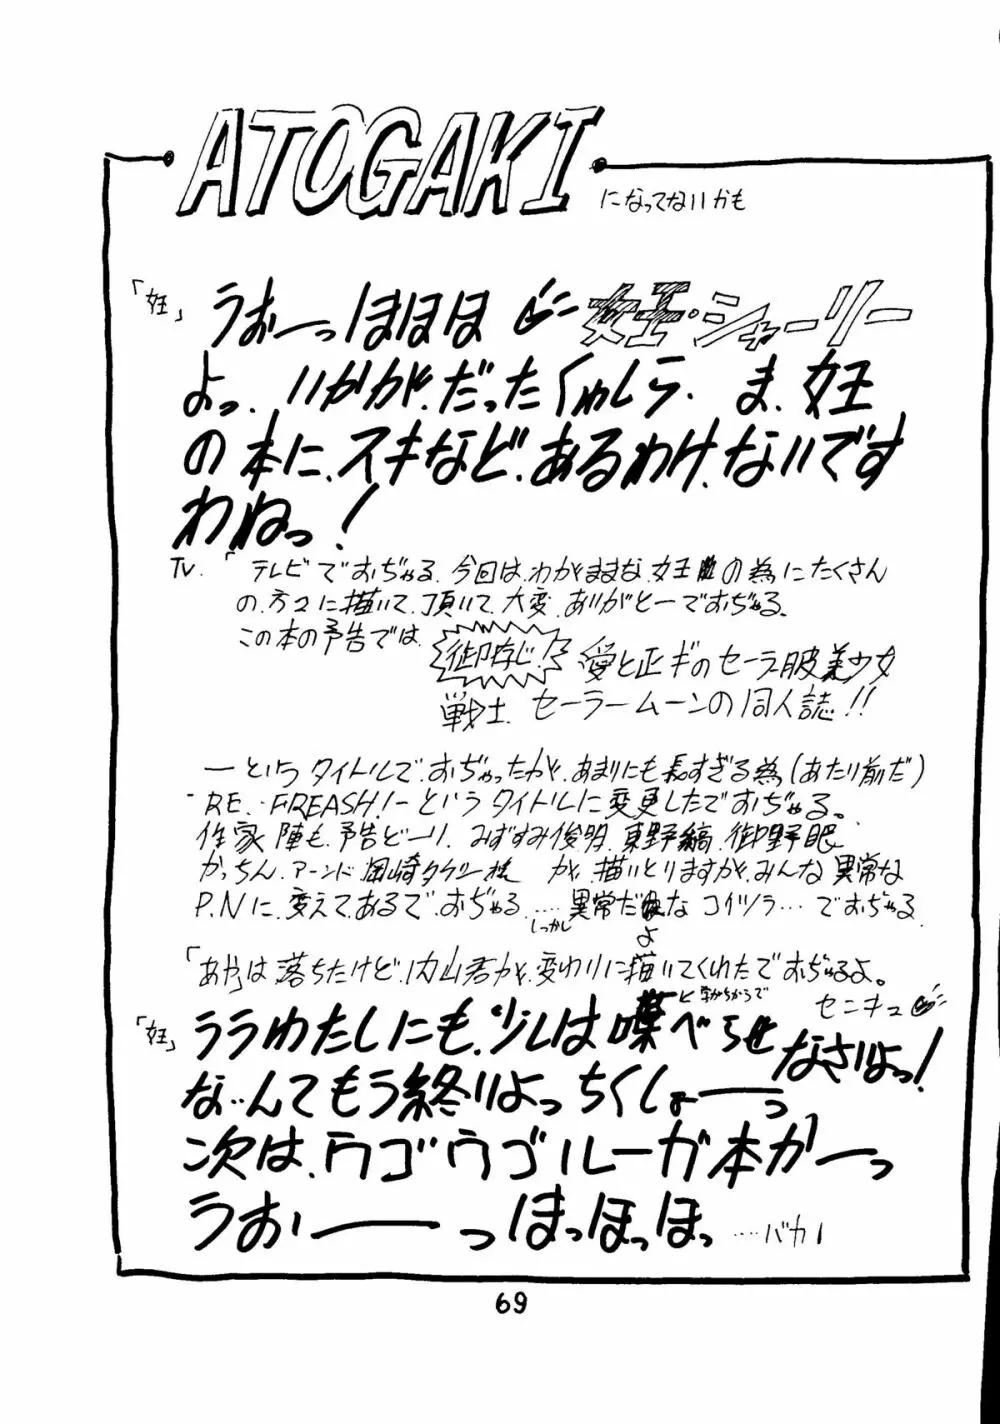 ATOGAKI
になってないかも
「女王」うおーっほほほ 女王・シャーリー
よっ. いかがだったくゎしら. ま.女王
の本に.スキなど.あるわけ.ないです
わねっ!
TV.「テレビでおぢゃる.今回は.わがままな.女王の為にたくさん
の.方々に描いて.頂いて.大変.ありがとーでおぢゃる.
この本の予告では. 御存じ! 愛と正ギのセーラー服美少女
戦士.セーラームーンの同人誌!!
ーというタイトルで.おぢゃったが.あまりにも長すぎる為(あたり前だ)
RE.FREASH!ーというタイトルに変更したでおぢゃる。
作家陣も.予告どーり.みずすみ俊明.東野縞.御野眼
かっちん.アーンド岡崎タケシ様 が.描いとりますが.みんな異常な
P.Nに.変えてあるで.おぢゃる.....異常だなコイツラ...でおぢゃる
しっかし
よ
「あやは落ちたけど.内山君が.変わりに描いてくれたでおぢゃるよ。
「女王」ララわたしにも.少しは喋べらせなさいよっ!
セニキュ
な..んてもう終りよっちくしょーーっ
次は.ウゴウゴルーガ本かーっ
うおぃーーっほっほっほっ ....バカ!
69